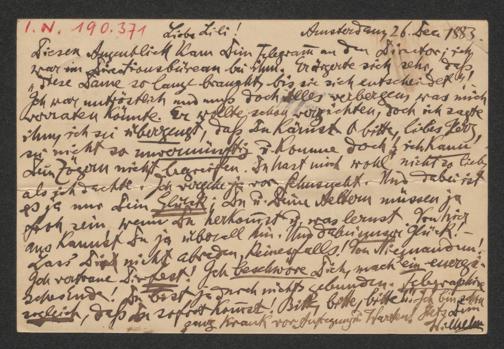 I. N. 190.371
Liebe Lili! Amsterdam, 26. Dec. 1883.
Diesen Augenblick kam Dein Telegramm an den Director; ich
war im Directionsbüreau bei ihm. Er ärgerte sich sehr, daß
„diese Dame so lang braucht, bis sie sich entscheidet"!
Ich war untröstlich und muß doch alles verbergen, was mich
verraten könnte. Er wollte schon verzichten, doch ich sagte
ihm, ich sei überzeugt, daß Du kämst. O bitte, liebes Herz,
sei nicht so unvernünftig u. komme doch; ich kann
Dein Zögern nicht begreifen. Du hast mich wohl nicht so lieb,
als ich dachte. Ich vergehe ja vor Sehnsucht. Und dabei ist
es ja nur Dein Glück; Du u. Deine Aeltern müssen ja
froh sein, wenn Du herkommst u. was lernst. Von hier
aus kannst Du ja überall hin. Und dabei unser Glück! –
Lass' Dir's nicht abreden, keinesfalls! Von Niemandem!
Ich vertraue Dir fest! Ich beschwöre Dich, mach' ein energi-
Du bist ja durch nichts gebunden. Telegraphire
sogleich, daß Du sofort kommst! Bitte, bitte, bitte! Ich bin schon
ganz krank vor Aufregung u. Warten! Stets Dein
Wilhelm